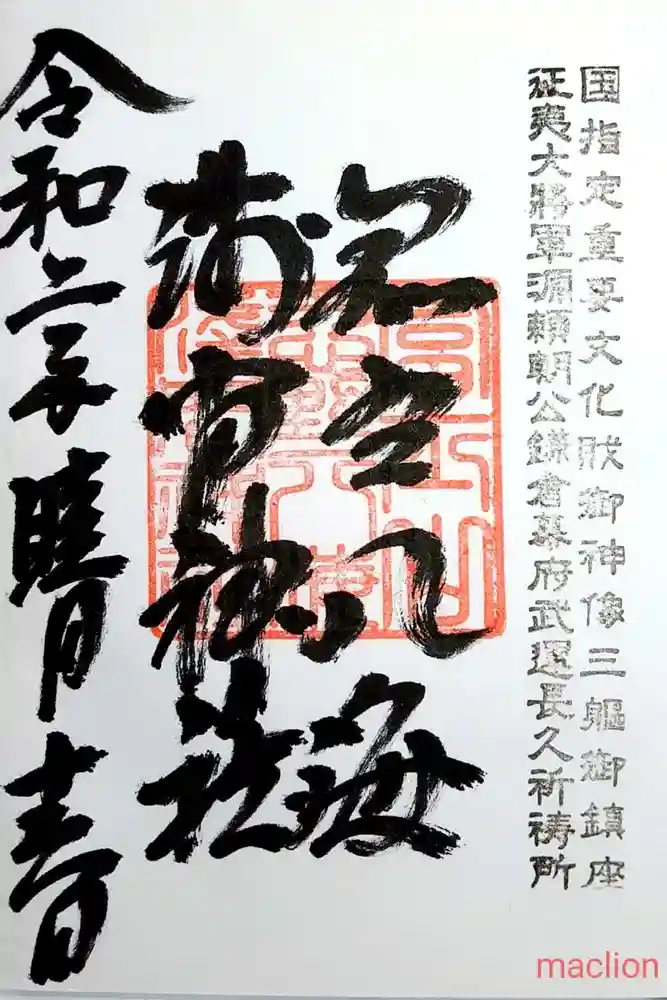 国指定重要文化財御神像三軀御鎮座
征夷大將軍源頼朝公鎌倉幕府武運長久祈祷所
八海
浅間神社
令和二年月吉日
maclion